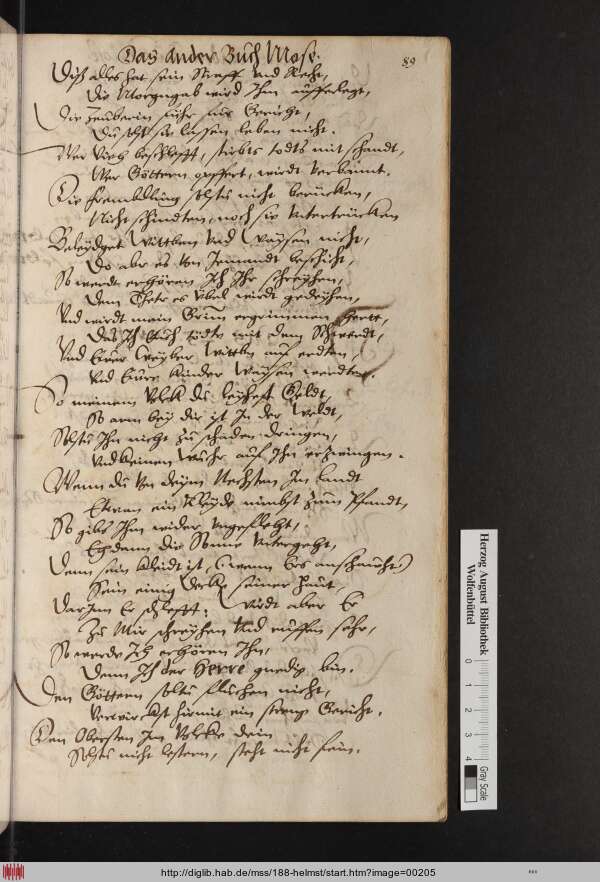 Das Ander Buch Mose.
89
Diß alles hat sein Straff und Recht,
Die Morgngab wird Ihm aufferlegt,
Die Zauberin führ fürs Gericht,
Du solt sie lassen leben nicht.
Wer Viech beschlefft, sterbts todts mit schandt,
Wer Göttern opffert, wirdt verbannt.
Die frembdling solstu nicht berücken,
Nicht schindten, noch sie untertrücken
Beleydget Wittben und Waysen nicht,
Do aber es von Jemandt beschicht,
So werdt erhören Ich Ihr schreyhen,
Dem Theter es übel wirdt gedeyhen,
Und wirdt mein Grim ergrimmen hertt,
Das Ich Euch tödte mit dem Schwerdt,
Und Eure Weyber Wittbn auf erdten,
Und Eure Kinder Waysen werdten.
So meinem Volck du leyhest Geldt,
So arm bey dir ist In der Weldt,
Solstu Ihn nicht zu schaden dringen,
Und keinen Wuchr auf Ihn erzwingen.
Wenn du von deym Nechsten Im Landt
Etwan ein Kleyde nimbst zum Pfandt,
So gibs Ihm wider ungeflecht,
Ehdann die Sonne untergeht,
Denn sein kleidt ist, (wenn Ers anschauhet)
Sein einig Decke seiner Haut,
Darinn Er schlefft: Wirdt aber Er
Zu Mir schreyhen und ruffen sehr,
So werde Ich erhören Ihn,
Denn Ich der Herre gnedig bin.
Den Göttern soltu fluchen nicht,
Verwirckst hiermit ein streng Gericht.
Den Obersten Im Volcke dein
Solstu nicht lestern, steht nicht fein.
Herzog August Bibliothek
Wolfenbüttel
0 1 2 3 4
Gray Scale
http://diglib.hab.de/mss/188-helmst/start.htm?image=00205